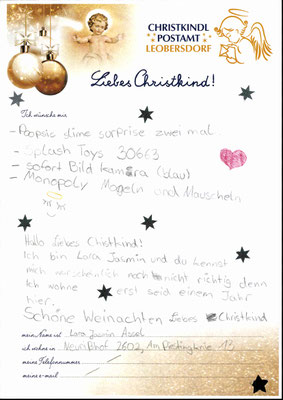 CHRISTKINDL
POSTAMT
LEOBERSDORF
Liebes Christkind!
Ich wünsche mir
- Poopsie slime surprise zwei mal.
- Splash Toys 30663
- sofort Bild kamera (blau)
- Monopoly Mogeln und Mauscheln
Hallo liebes Christkind!
Ich bin Lara Jasmin und du kennst
mich warscheinlich noch nicht richtig denn
Ich wohne erst seid einem Jahr
hier.
Schöne Weinachten liebes Christkind
mein Name ist Lara Jasmin
ich wohne in 2602, Am 13
meine Telefonnummer
meine e-mail